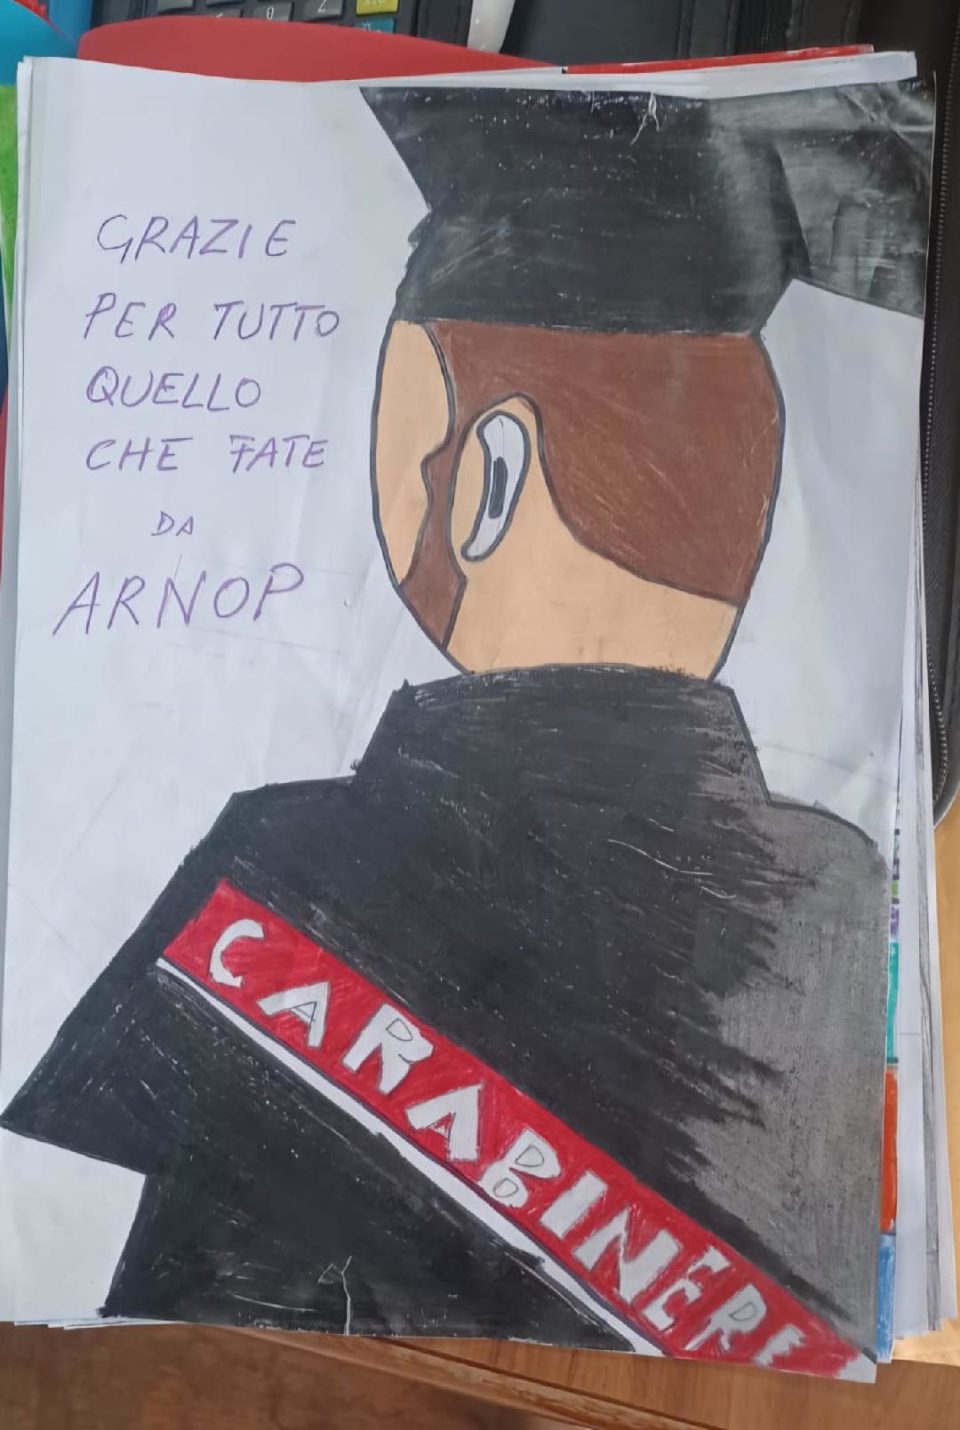 GRAZIE
PER TUTTO
QUELLO
CHE FATE
DA
ARNOP
CARABINERI